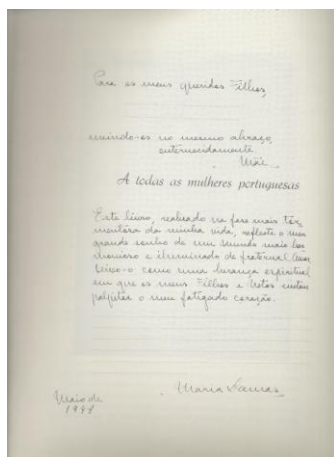 Para os meus queridos Filhos,
unindo-os no mesmo abraço,
enternecidamente
Mãe
A todas as mulheres portuguesas
Este livro, realizado na fase mais tor-
mentosa da minha vida, reflecte o meu
grande sonho de um mundo mais har
monioso e iluminado de fraternal Amor.
Deixo-o como uma herança espiritual
em que os meus Filhos e Netos sintam
palpitar o meu fatigado coração.
Maria Lamas
Maio de
1948